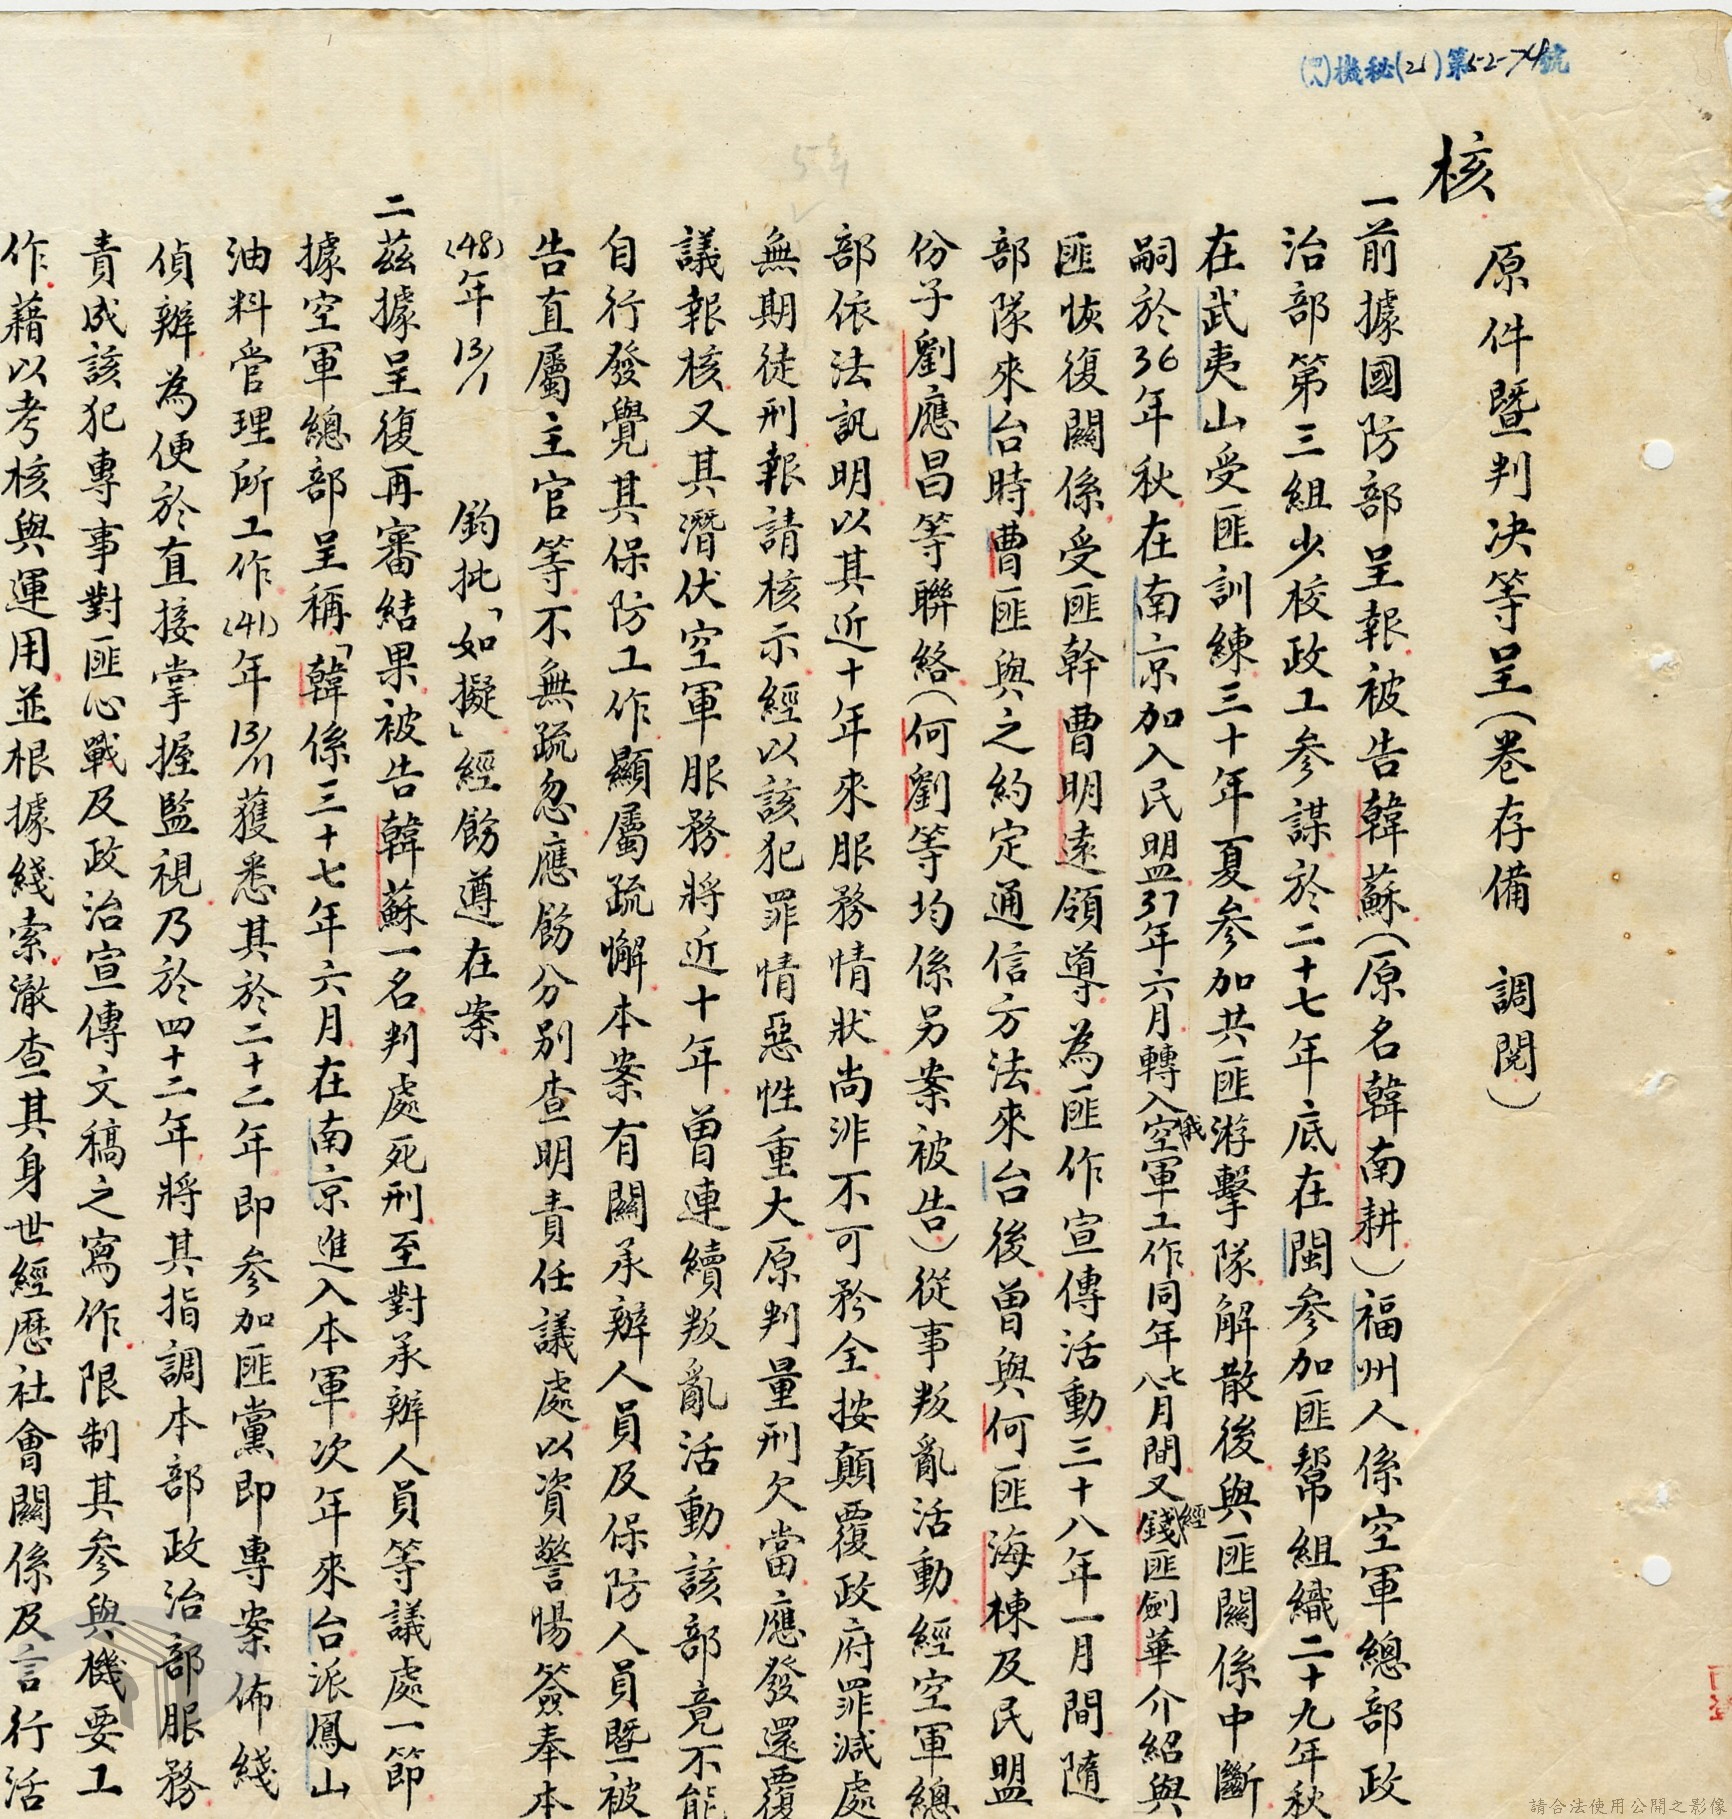 (四八)機秘(21)第52-74號
核
原件暨判決等呈(卷存備 調閱)
一前據國防部呈報被告韓蘇(原名韓南耕)福州人係空軍總部政
治部第三組少校政工參謀於二十七年底在閩參加匪幫組織二十九年秋
在武夷山受匪訓練三十年夏參加共匪游擊隊解散後與匪關係中斷
嗣於36年秋在南京加入民盟37年六月轉入空軍工作同年七八月間又經錢匪劍華介紹與
匪恢復關係受匪幹曹明遠領導為匪作宣傳活動三十八年一月間隨
部隊來台時曹匪與之約定通信方法來台後曾與何匪海棟及民盟
份子劉應昌等聯絡(何劉等均係另案被告)從事叛亂活動經空軍總
部依法訊明以其近十年來服務情狀尚非不可矜全按顛覆政府罪減處
無期徒刑報請核示經以該犯罪情惡性重大原判量刑欠當應發還覆
議報核又其潛伏空軍服務將近十年曾連續叛亂活動該部竟不能
自行發覺其保防工作顯屬疏懈本案有關承辦人員及保防人員暨被
告直屬主官等不無疏忽應飭分別查明責任議處以資警惕簽奉本
(48)年13/1 鈞批「如擬」經飭遵在案
二茲據呈復再審結果被告韓蘇一名判處死刑至對承辦人員等議處一節
據空軍總部呈稱「韓係三十七年六月在南京進入本軍次年來台派鳳山
油料管理所工作(41)年13/11獲悉其於二十二年即參加匪黨即專案佈綫
偵辦為便於直接掌握監視乃於四十二年將其指調本部政治部服務
責成該犯專事對匪心戰及政治宣傳文稿之寫作限制其參與機要工
作藉以考核與運用並根據綫索澈查其身世經歷社會關係及言行活
請合法使用公開之影像